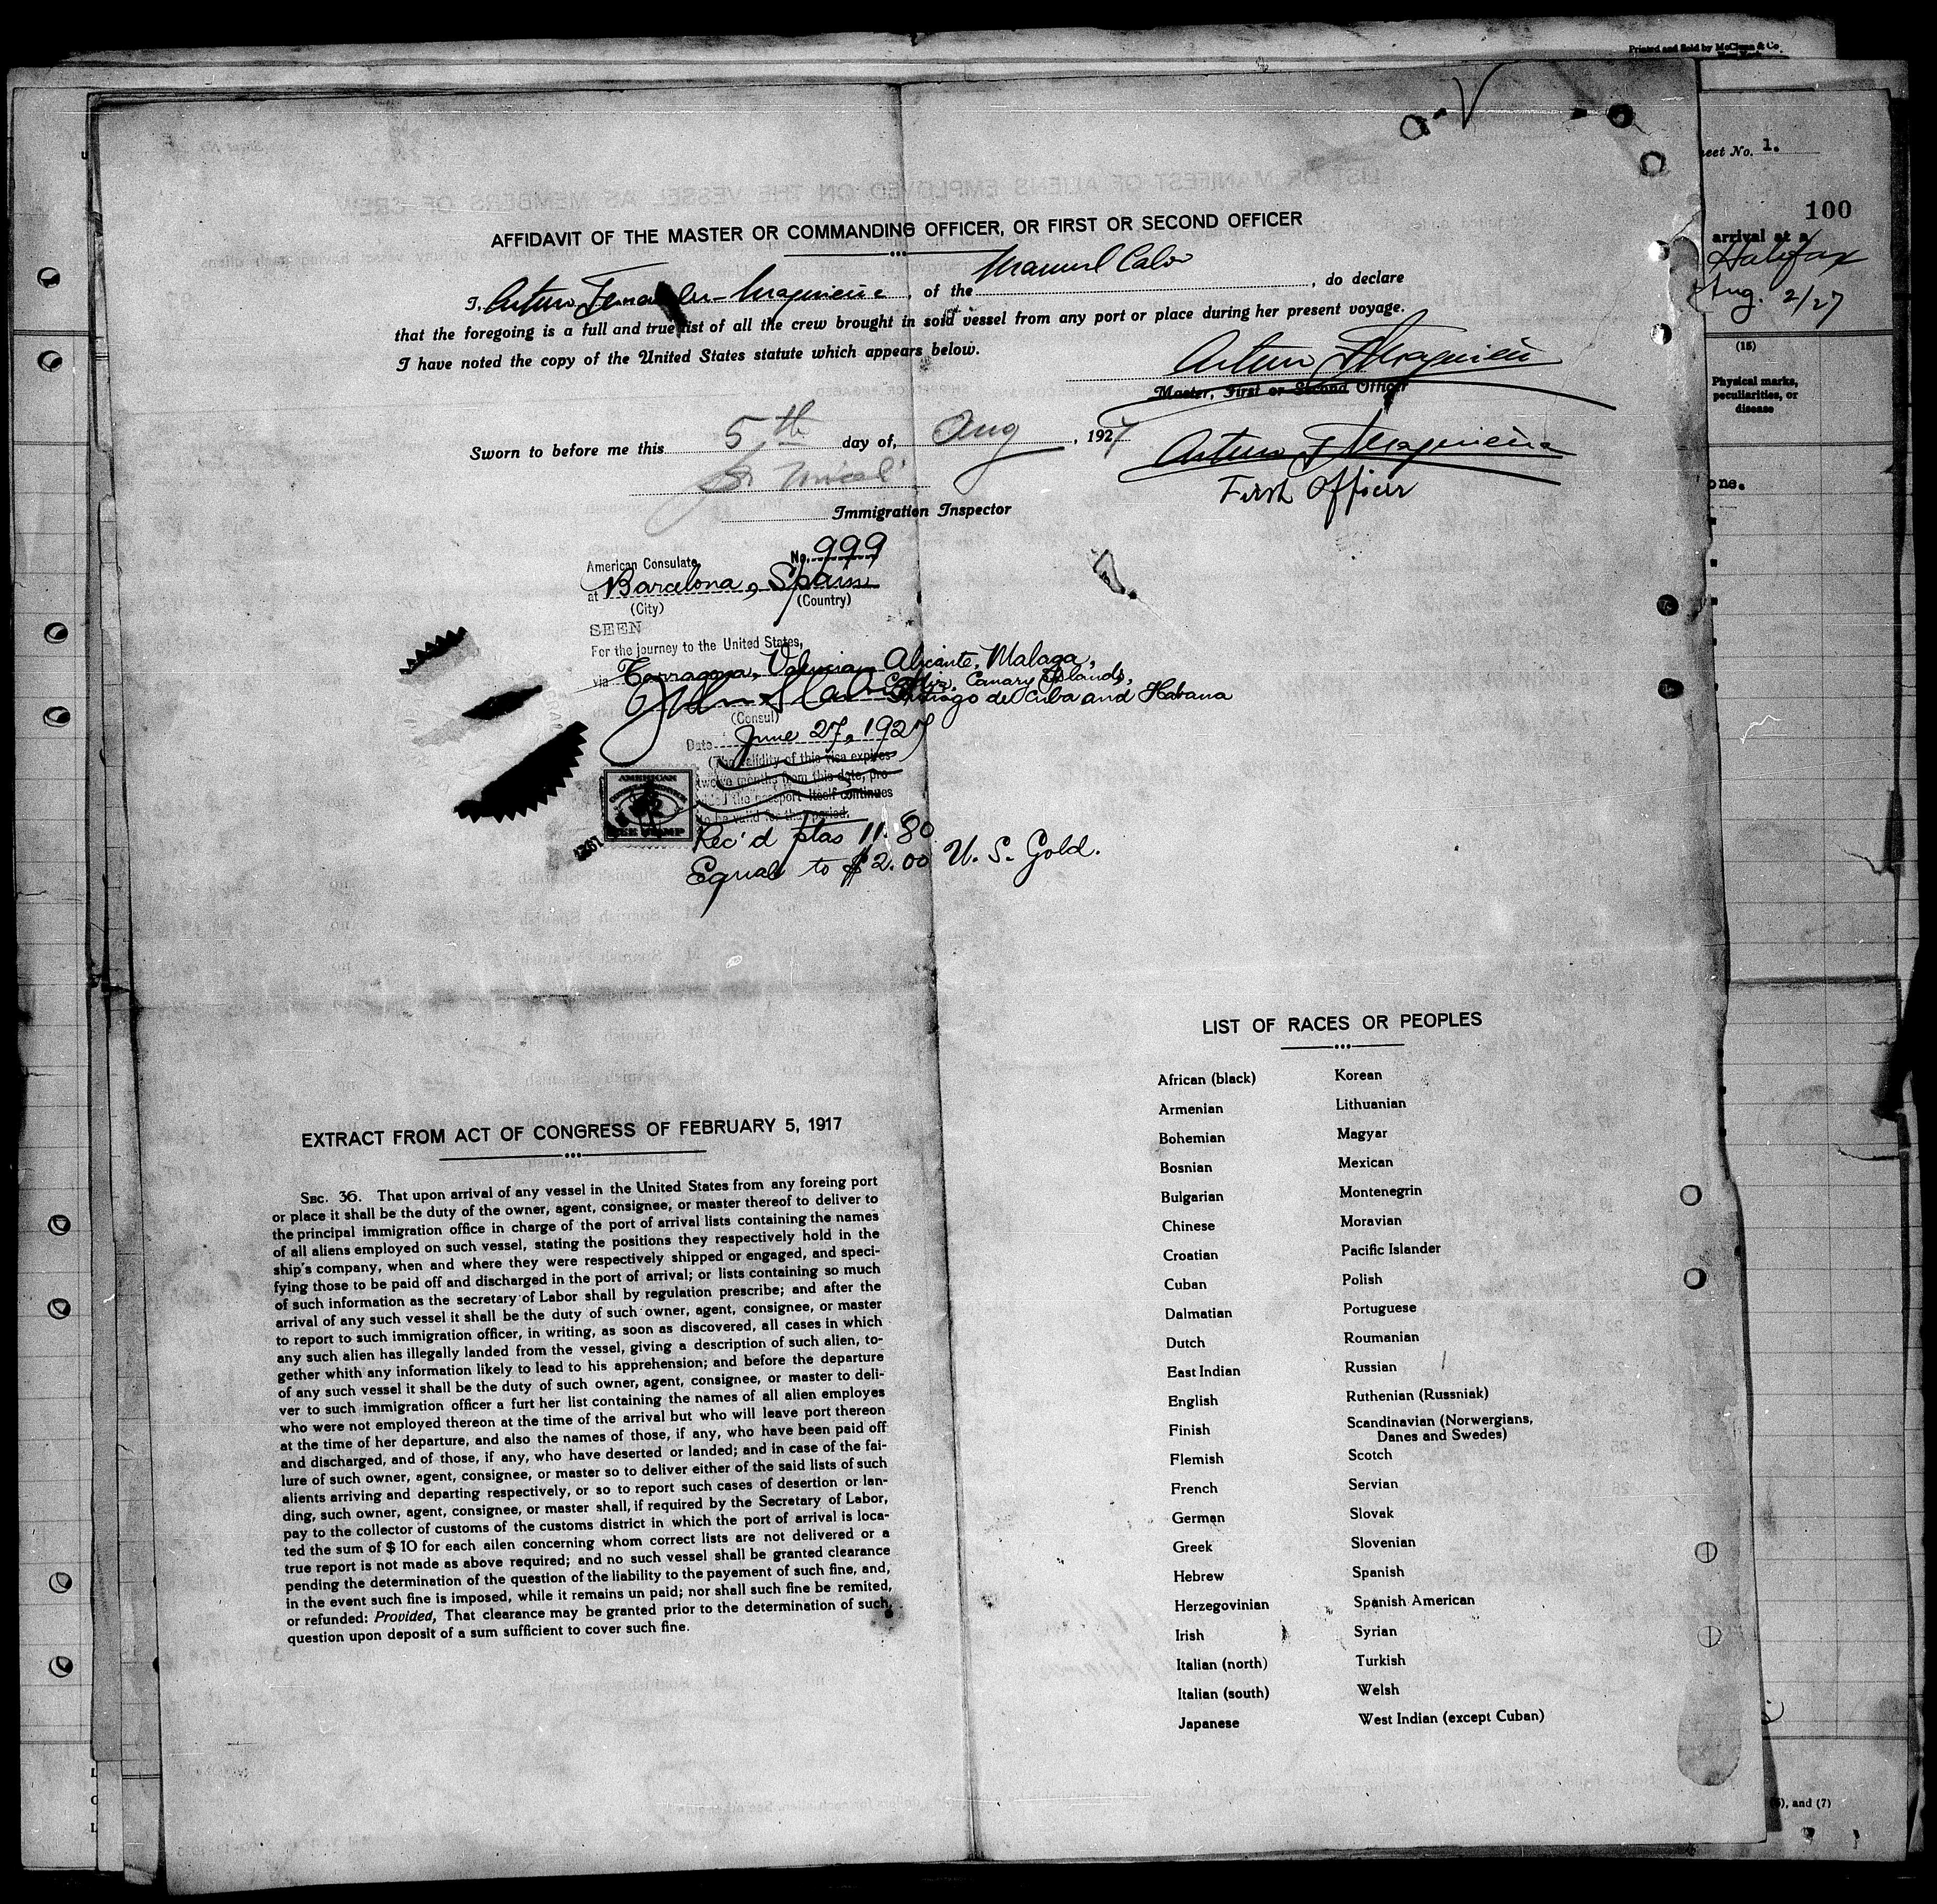 Printed and Sold by McClunn & Co
Sheet No. 1.
100
arrival at a
Halifax
Aug. 2/27
(15)
Physical marks,
peculiarities, or
disease
one.
AFFIDAVIT OF THE MASTER OR COMMANDING OFFICER, OR FIRST OR SECOND OFFICER
I, Arturo, of the Manuel Calvo, do declare
that the foregoing is a full and true list of all the crew brought in said vessel from any port or place during her present voyage.
I have noted the copy of the United States statute which appears below.
Arturo
Master, First or Second Officer
Sworn to before me this 5th day of, Aug, 1927
Arturo F
First Officer
Immigration Inspector
American Consulate No. 999
at Barcelona, Spain
(City) (Country)
SEEN
For the journey to the United States,
via Tarragona, Valencia, Alicante, Malaga,
Cadiz, Canary Islands,
Santiago de Cuba and Habana
(Consul)
Date June 27, 1927
(The validity of this visa expires
twelve months from this date, pro-
vided the passport itself continues
to be valid for that period.
AMERICAN
FEE STAMP
Rec'd ptas 11.80
Equal to $2.00 U. S. Gold.
EXTRACT FROM ACT OF CONGRESS OF FEBRUARY 5, 1917
SEC. 36. That upon arrival of any vessel in the United States from any foreing port
or place it shall be the duty of the owner, agent, consignee, or master thereof to deliver to
the principal immigration office in charge of the port of arrival lists containing the names
of all aliens employed on such vessel, stating the positions they respectively hold in the
ship's company, when and where they were respectively shipped or engaged, and speci-
fying those to be paid off and discharged in the port of arrival; or lists containing so much
of such information as the secretary of Labor shall by regulation prescribe; and after the
arrival of any such vessel it shall be the duty of such owner, agent, consignee, or master
to report to such immigration officer, in writing, as soon as discovered, all cases in which
any such alien has illegally landed from the vessel, giving a description of such alien, to-
gether whith any information likely to lead to his apprehension; and before the departure
of any such vessel it shall be the duty of such owner, agent, consignee, or master to deli-
ver to such immigration officer a furt her list containing the names of all alien employes
who were not employed thereon at the time of the arrival but who will leave port thereon
at the time of her departure, and also the names of those, if any, who have been paid off
and discharged, and of those, if any, who have deserted or landed; and in case of the fai-
lure of such owner, agent, consignee, or master so to deliver either of the said lists of such
alients arriving and departing respectively, or so to report such cases of desertion or lan-
ding, such owner, agent, consignee, or master shall, if required by the Secretary of Labor,
pay to the collector of customs of the customs district in which the port of arrival is loca-
ted the sum of $ 10 for each ailen concerning whom correct lists are not delivered or a
true report is not made as above required; and no such vessel shall be granted clearance
pending the determination of the question of the liability to the payement of such fine, and,
in the event such fine is imposed, while it remains un paid; nor shall such fine be remited,
or refunded: Provided, That clearance may be granted prior to the determination of such
question upon deposit of a sum sufficient to cover such fine.
LIST OF RACES OR PEOPLES
African (black)
Armenian
Bohemian
Bosnian
Bulgarian
Chinese
Croatian
Cuban
Dalmatian
Dutch
East Indian
English
Finish
Flemish
French
German
Greek
Hebrew
Herzegovinian
Irish
Italian (north)
Italian (south)
Japanese
Korean
Lithuanian
Magyar
Mexican
Montenegrin
Moravian
Pacific Islander
Polish
Portuguese
Roumanian
Russian
Ruthenian (Russniak)
Scandinavian (Norwergians,
Danes and Swedes)
Scotch
Servian
Slovak
Slovenian
Spanish
Spanish American
Syrian
Turkish
Welsh
West Indian (except Cuban)
), and (7)